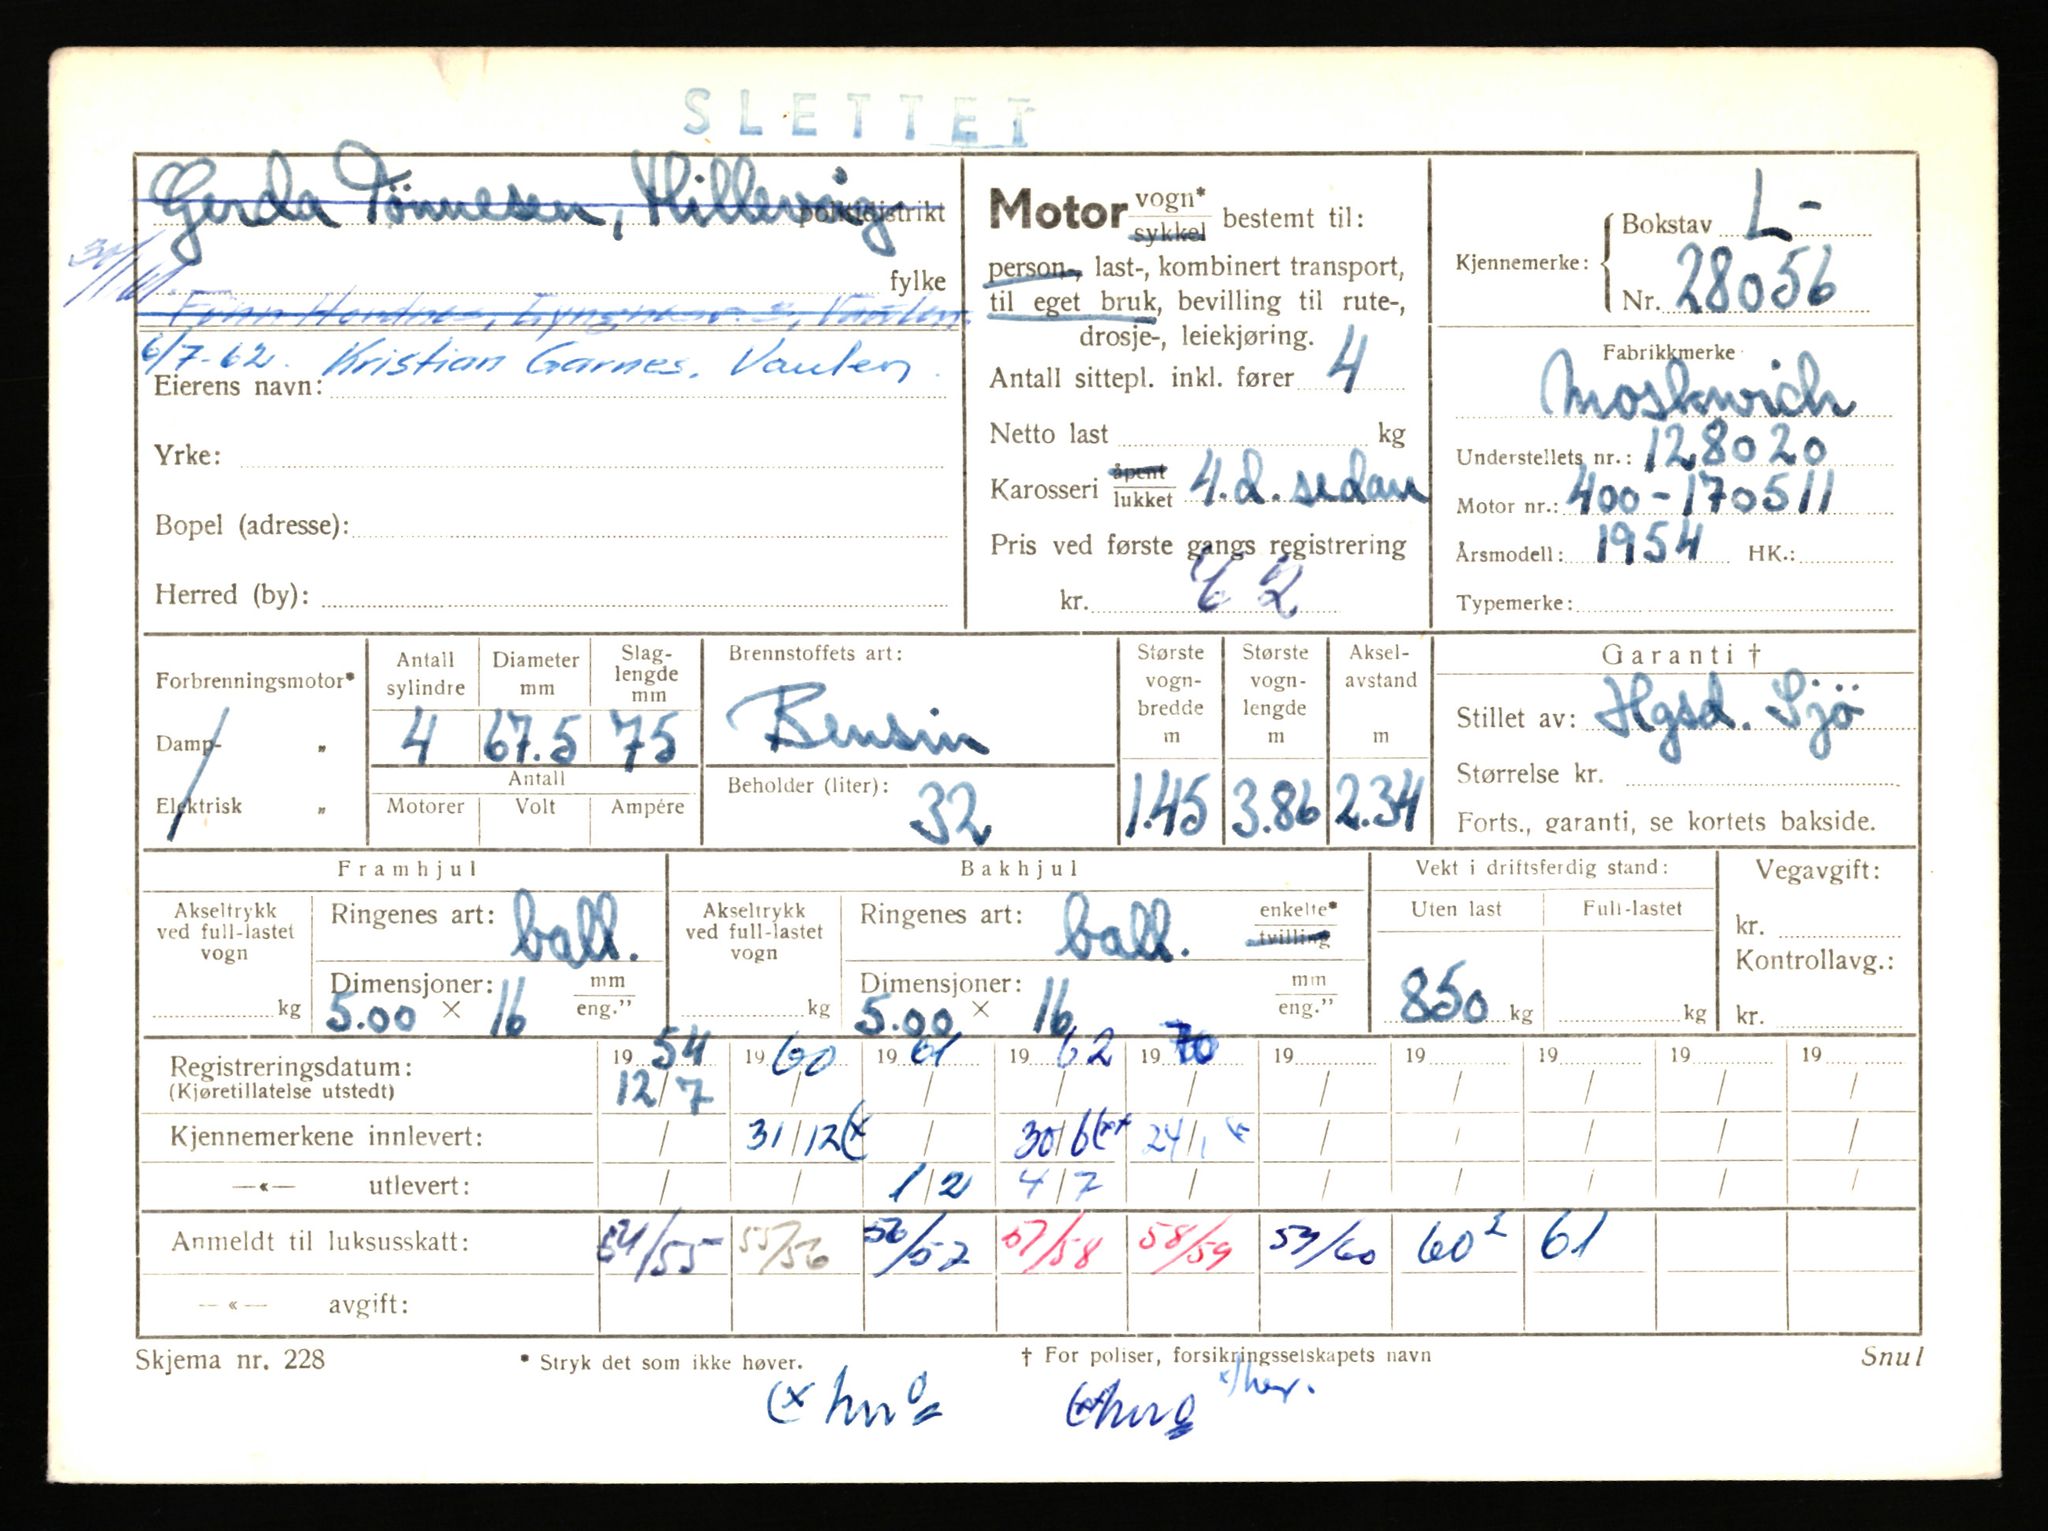 SLETTET
Gerda Tönnesen, Hillevåg
politidistrikt
fylke
6/7-62. Kristian Garnes. Vaulen.
Eierens navn:
Yrke:
Bopel (adresse):
Herred (by):
Motor vogn* sykkel bestemt til:
person-, last-, kombinert transport,
til eget bruk, bevilling til rute-,
drosje-, leiekjøring.
Antall sittepl. inkl. fører 4
Netto last kg
Karosseri åpent lukket 4.d. sedan
Pris ved første gangs registrering
kr. 62
Kjennemerke: Bokstav L-
Nr. 28056
Fabrikkmerke
Moskwich
Understellets nr.: 128020
Motor nr.: 400-170511
Årsmodell: 1954 HK.:
Typemerke:
Forbrenningsmotor*
Damp- „
Elektrisk „
Antall sylindre Diameter mm Slaglengde mm
4 67.5 75
Antall
Motorer Volt Ampére
Brennstoffets art:
Bensin
Beholder (liter):
32
Største vogn-bredde m Største vogn-lengde m Aksel-avstand m
1.45 3.86 2.34
Garanti †
Stillet av: Hgsd. Sjö
Størrelse kr.
Forts., garanti, se kortets bakside.
Framhjul
Akseltrykk ved full-lastet vogn
kg
Ringenes art: ball.
Dimensjoner: mm eng.”
5.00 × 16
Bakhjul
Akseltrykk ved full-lastet vogn
kg
Ringenes art: ball. enkelte* tvilling
Dimensjoner: mm eng.”
5.00 × 16
Vekt i driftsferdig stand:
Uten last Full-lastet
850 kg kg
Vegavgift:
kr.
Kontrollavg.:
kr.
Registreringsdatum: 1954 1960 1961 1962 1970 19 19 19 19 19
(Kjøretillatelse utstedt) 12/7 / / / / / / / / /
Kjennemerkene innlevert: / 31/12 (x / 30/6 (xx 24/1 x / / / / /
—«— utlevert: / / 1/2 4/7 / / / / / /
Anmeldt til luksusskatt: 54/55 55/56 56/57 57/58 58/59 59/60 60² 61
—«— avgift:
Skjema nr. 228 * Stryk det som ikke høver. † For poliser, forsikringsselskapets navn Snul